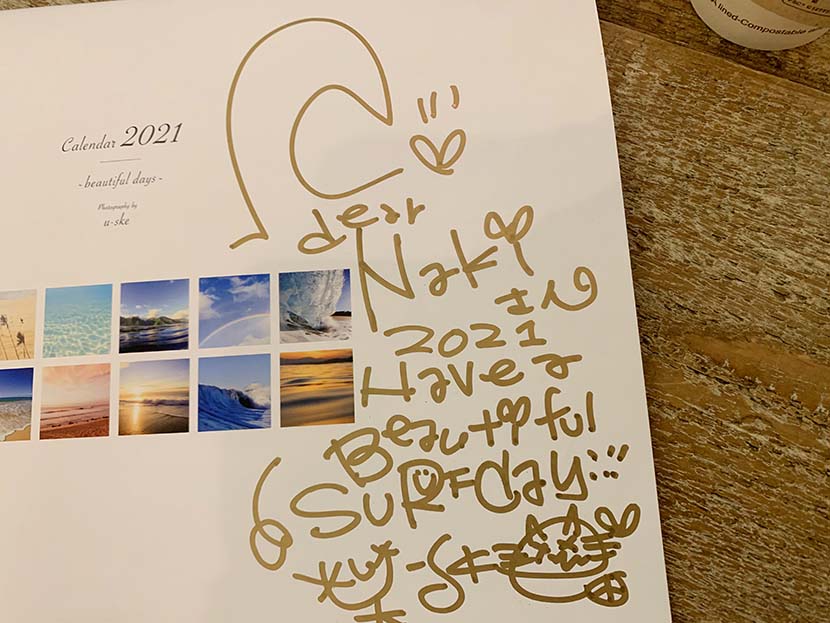 Calendar 2021
- beautiful days -
Photography by
u-ske
dear
Naki
さん
2021
Have a
Beautiful
SURFday
u-ske
lined-Compostable